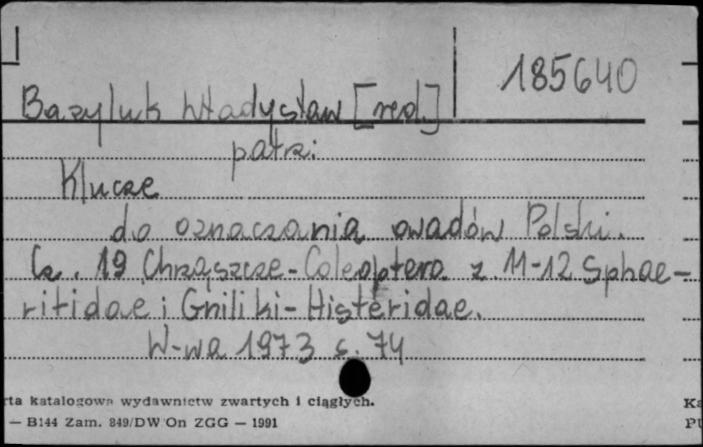 185640
Bazyluk Władysław [red.]
patrz:
Klucze
do oznaczania owadów Polski.
Cz. 19 Chrząszcze - Coleoptera z. 11-12 Sphae-
ritidae i Gniliki - Histeridae.
W-wa 1973 s. 74
rta katalogowa wydawnictw zwartych i ciągłych.
— B144 Zam. 849/DW On ZGG — 1991
Ka
Pu